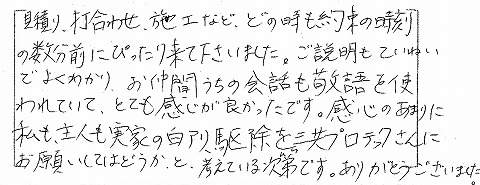 見積り、打合わせ、施工など、どの時も約束の時刻
の数分前にぴったり来て下さいました。ご説明もていねい
でよくわかり、お仲間うちの会話も敬語を使
われていて、とても感じが良かったです。感心のあまりに
私も主人も実家の白アリ駆除を三共プロテックさんに
お願いしてはどうか、と、考えている次第です。ありがとうございました。